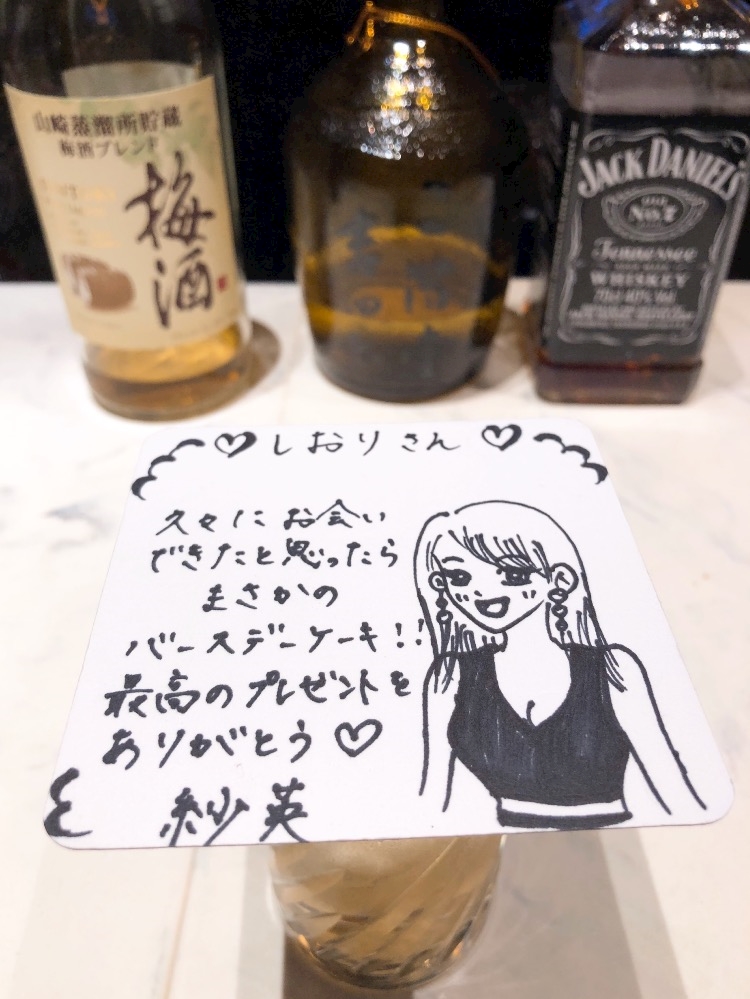 山崎蒸溜所貯蔵
梅酒ブレンド
梅酒
JACK DANIEL'S
OLD
No. 7
Tennessee
WHISKEY
70cl 40% Vol
♡しおりさん♡
久々にお会い
できたと思ったら
まさかの
バースデーケーキ!!
最高のプレゼントを
ありがとう♡
紗英